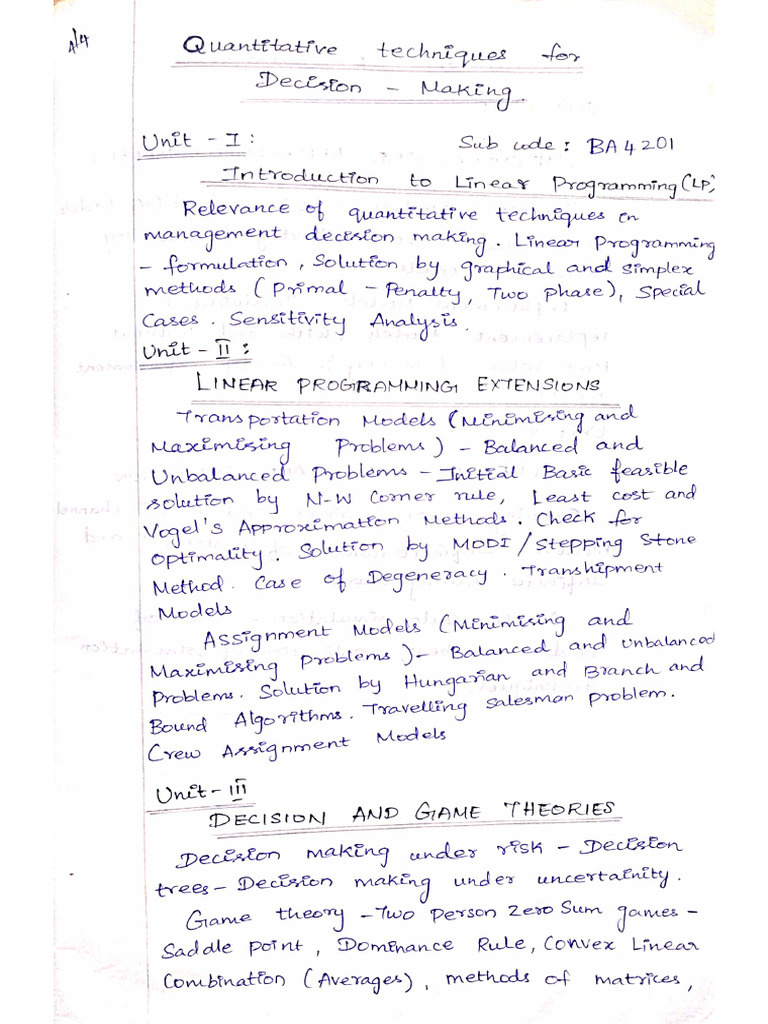 4/4
Quantitative techniques for
Decision - Making.
Unit - I : Sub code : BA4201
Introduction to Linear Programming (LP)
Relevance of quantitative techniques in
management decision making. Linear Programming
- formulation, Solution by graphical and simplex
methods (Primal - Penalty, Two phase), Special
Cases. Sensitivity Analysis.
Unit - II :
LINEAR PROGRAMMING EXTENSIONS
Transportation Models (Minimising and
Maximising Problems) - Balanced and
Unbalanced Problems - Initial Basic feasible
solution by N-W Corner rule, Least cost and
Vogel's Approximation Methods. Check for
optimality. Solution by MODI / Stepping Stone
Method. Case of Degeneracy. Transhipment
Models
Assignment Models (Minimising and
Maximising Problems) - Balanced and unbalanced
Problems. Solution by Hungarian and Branch and
Bound Algorithms. Travelling salesman problem.
Crew Assignment Models
Unit - III
DECISION AND GAME THEORIES
Decision making under risk - Decision
trees - Decision making under uncertainity.
Game theory - Two Person Zero Sum games -
Saddle point, Dominance Rule, Convex Linear
Combination (Averages), methods of matrices,